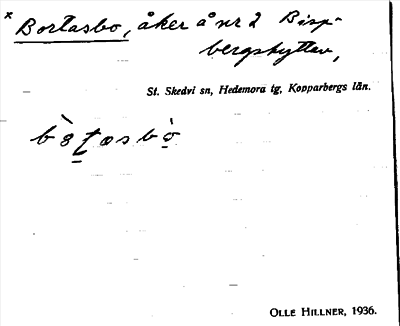 × Bortasbo, åker å nr 2 Bisp-
bergshyttan,
St. Skedvi sn, Hedemora tg, Kopparbergs län.
OLLE HILLNER, 1936.